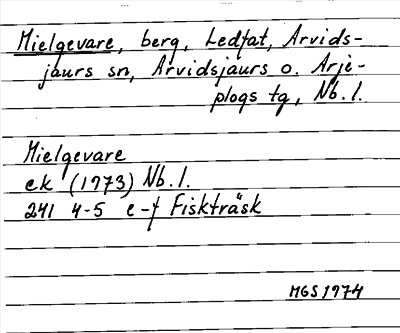 Mielgevare, berg, Ledfat, Arvids-
jaurs sn, Arvidsjaurs o. Arje-
plogs tg, Nb.l.
Mielgevare
ek (1973) Nb.l.
241 4-5 e-f Fiskträsk
MGS 1974